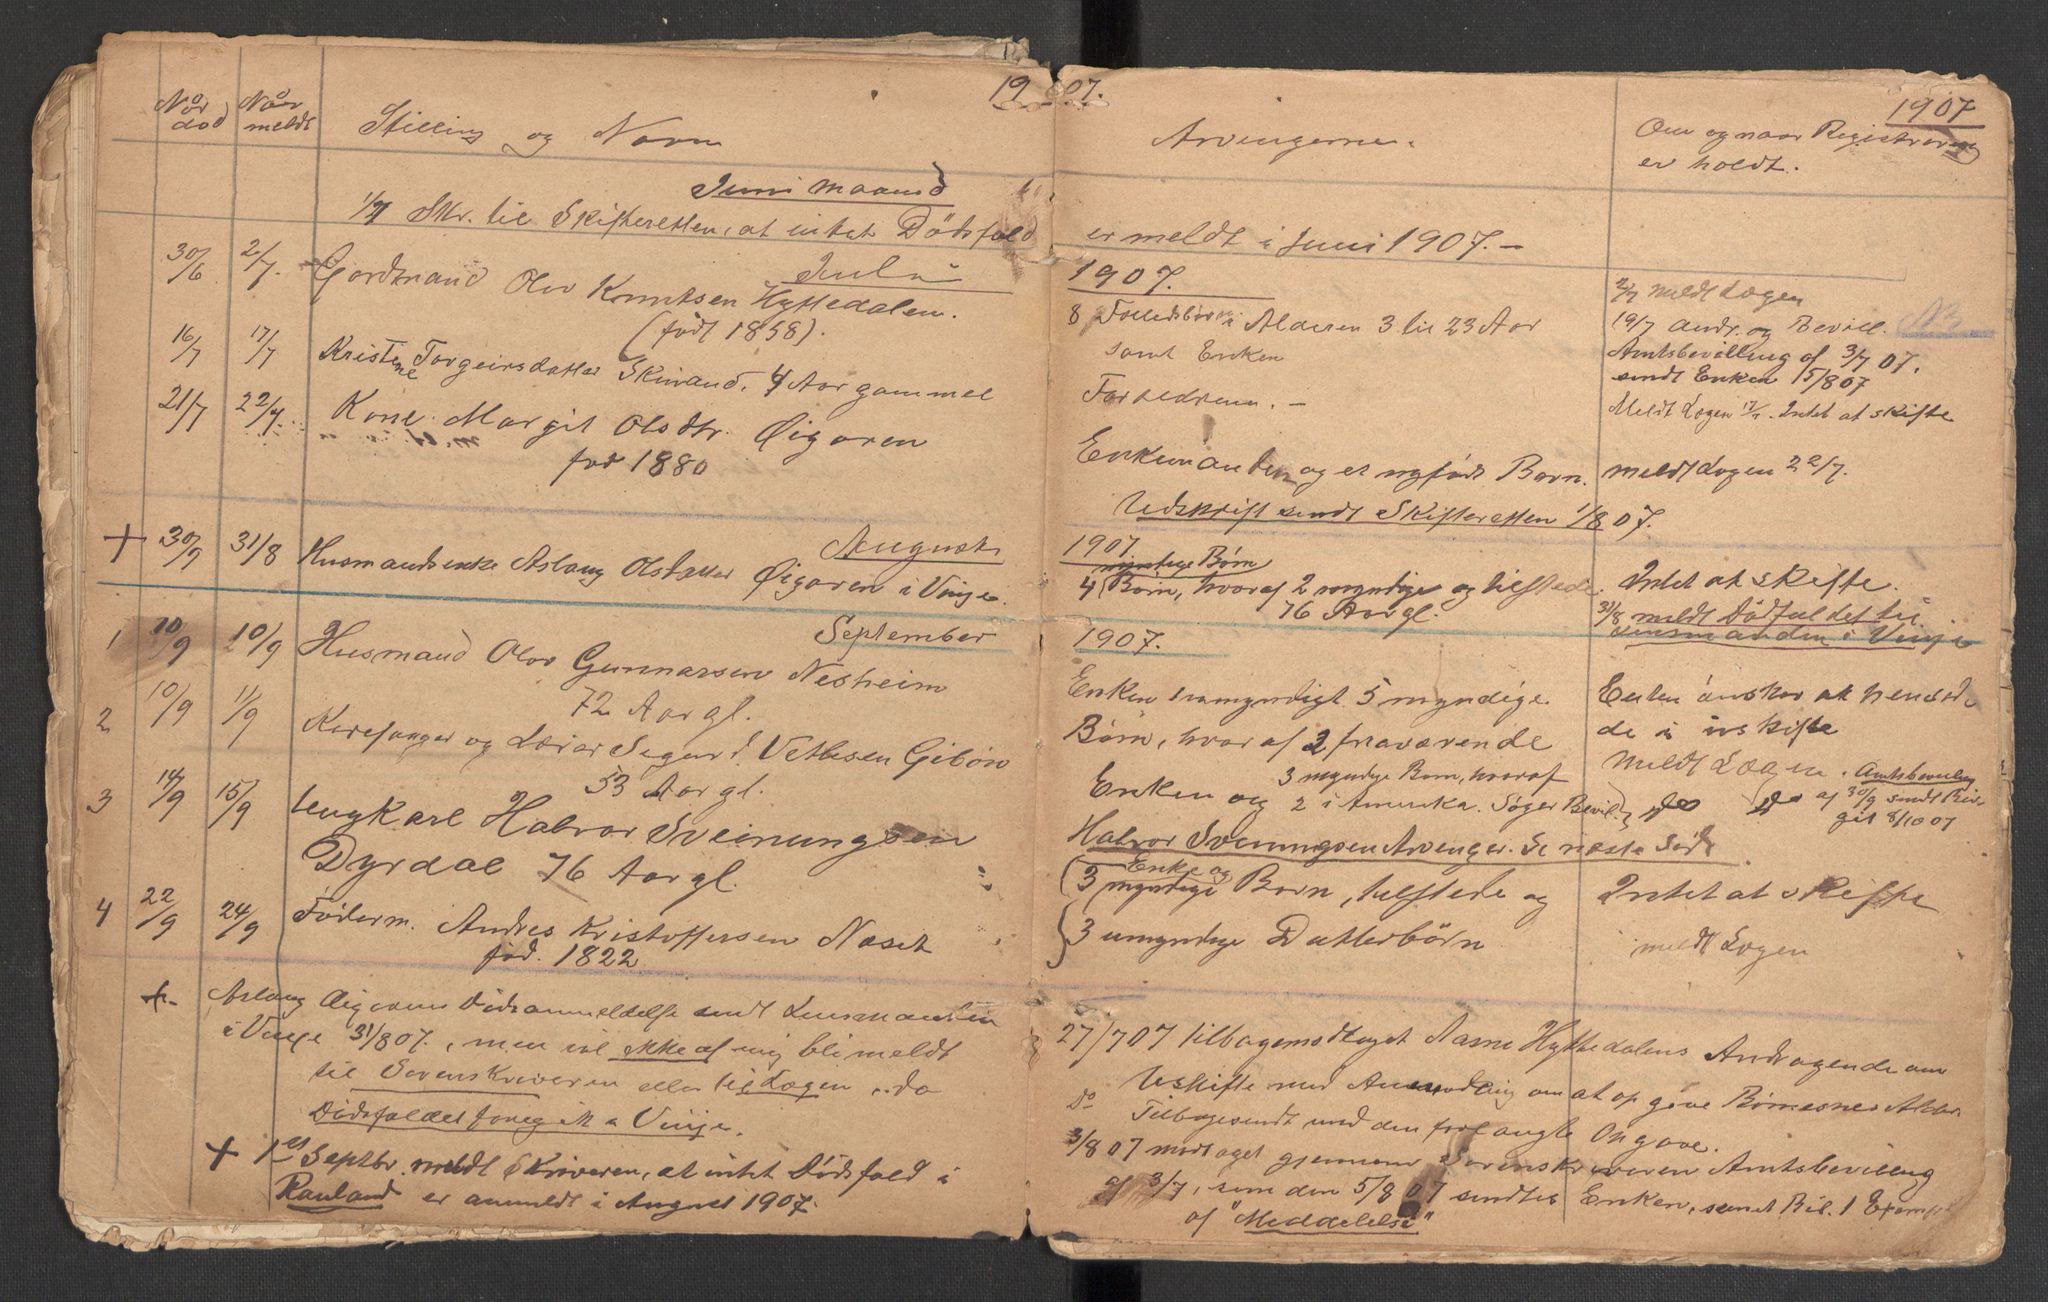 1907.
1907
Naar død
Naar meldt
Stilling og Navn
Juni Maaned
1/7 Skr. til Skifteretten, at intet Dødsfald
30/6 2/7. Gardmand Olav Knutsen Hyttedalen.
Juli
(født 1858).
16/7 17/7 Kristene Torgeirsdatter Skinand, 4 Aar gammel
21/7 22/7. Kone Margit Olsdtr. Øigaren
fød 1880
August
+ 30/9 31/8 Husmandsenke Aslaug Olsdatter Øigaren i Vinje.
September
1 10/9 10/9 Husmand Olav Gunnarsen Nesheim
72 Aar gl.
2 10/9 11/9 Kirkesanger og Lærer Segurd Vetlesen Gibøn
53 Aar gl.
3 14/9 15/9 Ungkarl Halvor Sveinungsen
Dyrdal 76 Aar gl.
4 22/9 24/9 Føderm. Andres Kristoffersen Næset
fød. 1822
+ Aslaug Øigarens Dødsanmeldelse sendt Lensmanden
i Vinje 31/8 07., men vil ikke af mig bli meldt
til Sorenskriveren eller til Lægen, da
Dødsfaldet foregik i Vinje.
+ 1st Septbr. meldt Skriveren, at intet Dødsfald i
Rauland er anmeldt i August 1907.
Arvingerne.
Om og naar Registrering
er holdt.
er meldt i Juni 1907. –
1907.
8 Fællesbørn i Alderen 3 til 23 Aar
samt Enken
2/7 meldt Lægen
19/7 andr. og Bevill.
Amtsbevilling af 3/7 07.
sendt Enken 5/8 07
Forældrene. –
Meldt Lægen 17/7. Intet at skifte
Enkemanden og et nyfødt Barn.
meldt Lægen 22/7.
Udskrift sendt Skifteretten 1/8 07.
1907
myndige Børn
4 Børn, hvoraf 2 myndige og tilstede.
76 Aar gl.
Intet at skifte.
31/8 meldt Dødsfaldet til
Lensmanden i Vinje
1907.
Enken samt 5 myndige
Børn, hvoraf 2 fraværende
Enken ønsker at hensidde
i uskifte
Meldt Lægen.
Enken og 3 myndige Børn, hvoraf
2 i Amerika. Søger Bevil.
do do
Amtsbevilling
af 30/9 sendt
8/10 07
Halvor Sveinungsen Arvinger. Se næste Side.
Enke og
3 myndige Børn, tilstede og
3 umyndige Datterbørn
Intet at skifte
meldt Lægen
27/7 07 tilbagemodtaget Aasne Hyttedalens Andragende om
Uskifte med Anmodning om at opgive Børnenes Alder.
Do Tilbagesendt med den forlangte Opgave.
3/8 07 modtaget gjennem Sorenskriveren Amtsbevilling
af 3/7, som den 5/8 07 sendtes Enken, samt Bil. 1 Exempl.
af "Meddelelse"